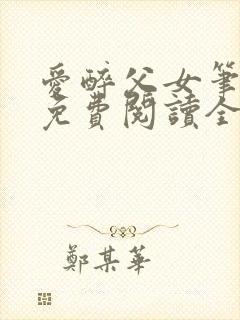 愛醉父女筆
免費閱讀全
鄭某華